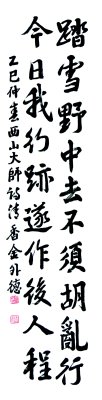 踏雪野中去不須胡亂行
今日我行跡遂作後人程
乙巳仲春西山大師詩清香金外德